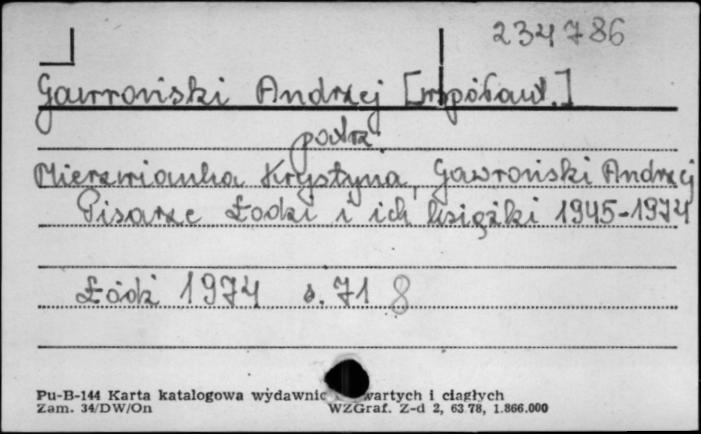 234786
Gawroński Andrzej [współaut.]
patrz
Mierzwianka Krystyna, Gawroński Andrzej
Pisarze Łodzi i ich książki 1945-1974
Łódź 1974 s. 71 8
Pu-B-144 Karta katalogowa wydawnic wartych i ciągłych
Zam. 34/DW/On WZGraf. Z-d 2, 63 78, 1.866.000